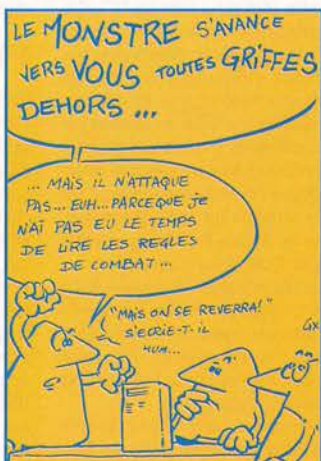 LE MONSTRE S'AVANCE
VERS VOUS TOUTES GRIFFES
DEHORS ...
... MAIS IL N'ATTAQUE
PAS... EUH... PARCEQUE je
N'AI PAS EU LE TEMPS
DE LIRE LES REGLES
DE COMBAT ...
"MAIS ON SE REVERRA!"
S'ECRIE-T-IL
HUM...
GX